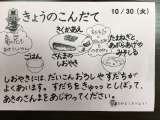 きょうのこんだて
10/30(火)
きくかあえ
たまねぎと
あぶらあげの
みそしる
ごはん
さんまの
しおやき
しおやきには、だいこんおろしやすだちが
よくあいます。すだちをきゅっとしぼって、
あきのさんまをあじわってください。